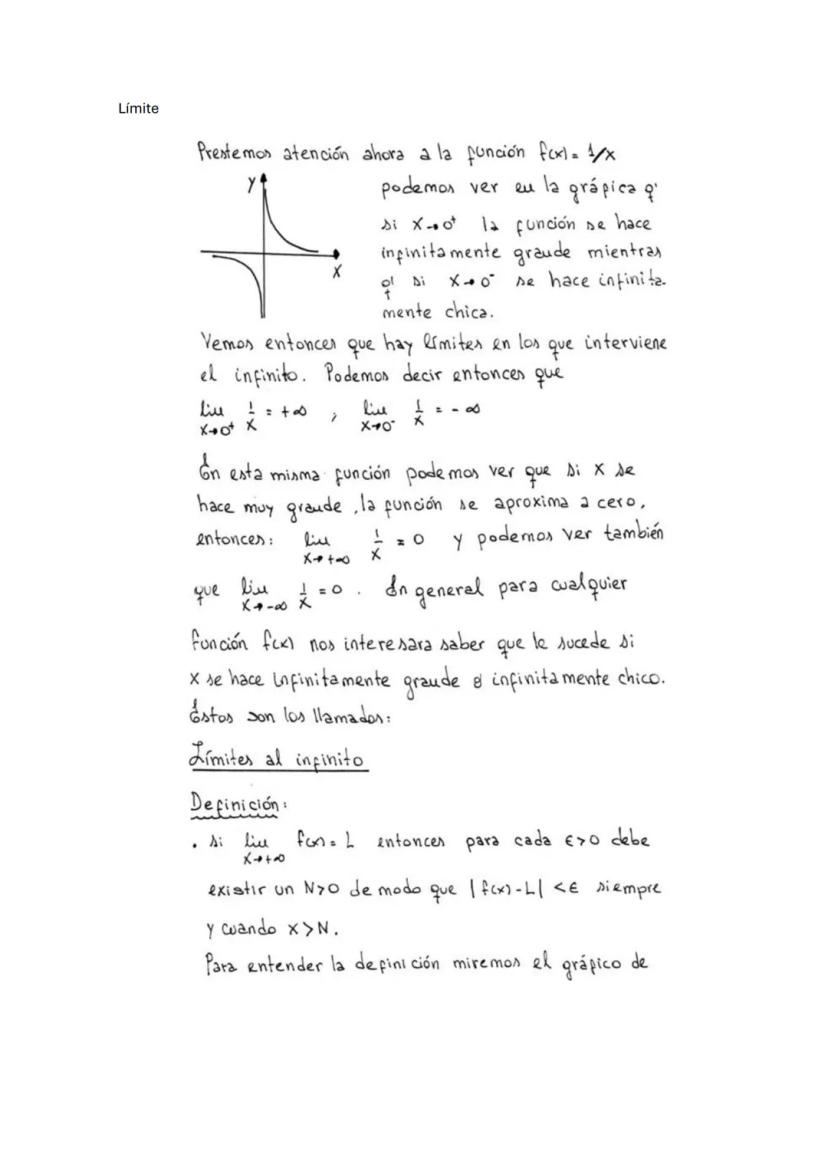 Límite
Prestemos atención ahora a la función f(x) = 1/x
y
x
podemos ver en la gráfica q'
si x→0⁺ la función se hace
infinitamente grande mientras
q' si x→0⁻ se hace infinita-
mente chica.
Vemos entonces que hay límites en los que interviene
el infinito. Podemos decir entonces que
lim x→0⁺ 1/x = +∞ ; lim x→0⁻ 1/x = -∞
En esta misma función podemos ver que si x se
hace muy grande, la función se aproxima a cero,
entonces: lim x→+∞ 1/x = 0 y podemos ver también
que lim x→-∞ 1/x = 0. En general para cualquier
función f(x) nos interesara saber que le sucede si
x se hace infinitamente grande o infinitamente chico.
Éstos son los llamados:
Límites al infinito
Definición:
• Si lim x→+∞ f(x) = L entonces para cada ε>0 debe
existir un N>0 de modo que |f(x)-L| <ε siempre
y cuando x>N.
Para entender la definición miremos el gráfico de